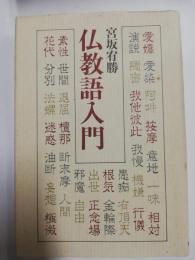 宮坂宥勝
仏教語入門
愛嬌 愛染 阿吽 按摩 意地 一味 相対
演説 我他彼此 我慢 機嫌 行儀
愚痴 有頂天
根気 金輪際
出世 正念場
邪魔 自由
素性 世間 退屈 檀那 断末摩 人間
花代 分別 法螺 迷惑 油断